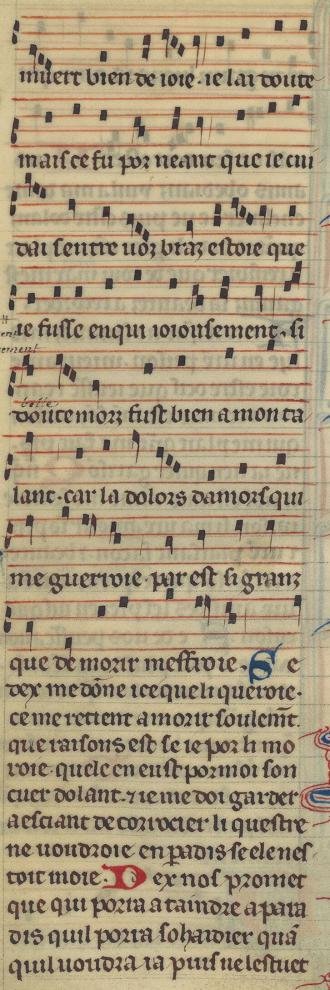 muert bien de ioie · ie lai doute
mais ce fu por neant que ie cui
dai sentre uoz braz estoie que
ie fusse enqui ioiousement · si
belle
douce morz fust bien a mon ta
lant · car la dolors damors qui
me guerroie · par est si granz
que de morir meffroie · S e
dex me dōne ice que li querroie ·
ce me retient a morir soulem̄t ·
que raisons est se ie por li mo
roie · quele en eust por moi son
cuer dolant · ⁊ ie me doi garder
a esciant de corrocier li questre
ne uoudroie en padis se ele nes
toit moie · D ex nos promet
que qui porra ataindre a para
dis quil porra sohaidier quā
quil uoudra ia puis ne lestuet